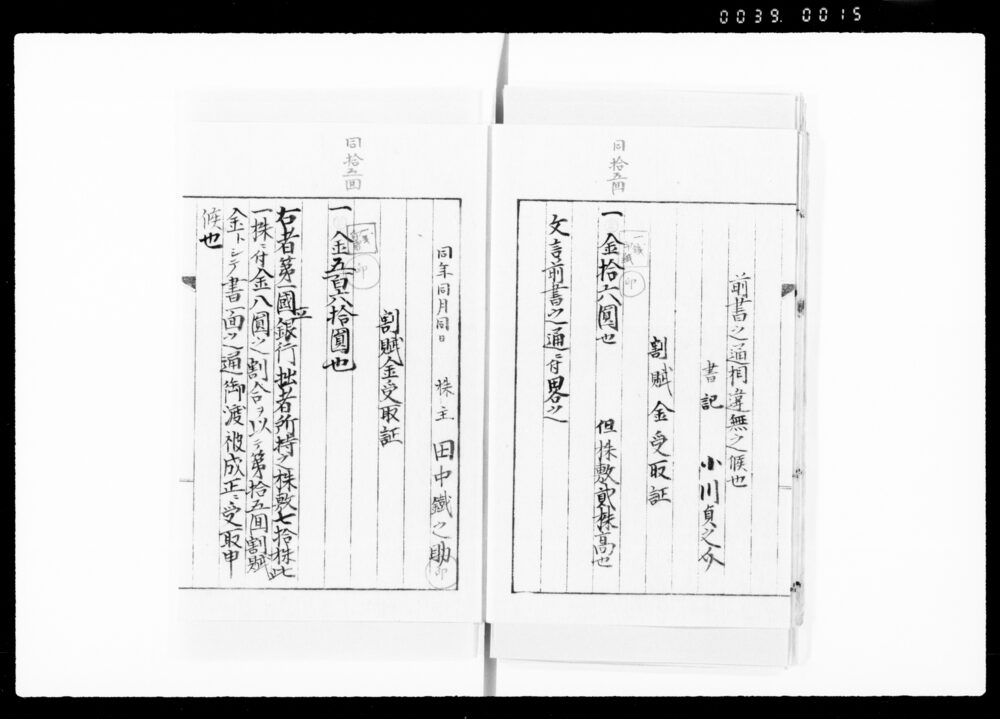 0039. 0015
同拾五回
前書之通相違無之候也
書記 小川貞之介
割賦金受取証
一金拾六圓也 但株数貳株高也
印
文言前書之通ニ付畧之
同拾五回
同年同月同日 株主 田中鐵之助
印
割賦金受取証
一金五百六拾圓也
印
右者第一國立銀行拙者所持之株数七拾株此
一株ニ付金八圓之割合ヲ以テ第拾五回割賦
金トシテ書面之通御渡被成正ニ受取申
候也